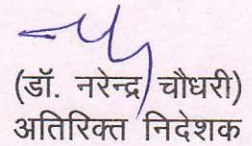 (डॉ. नरेन्द्र चौधरी)
अतिरिक्त निदेशक